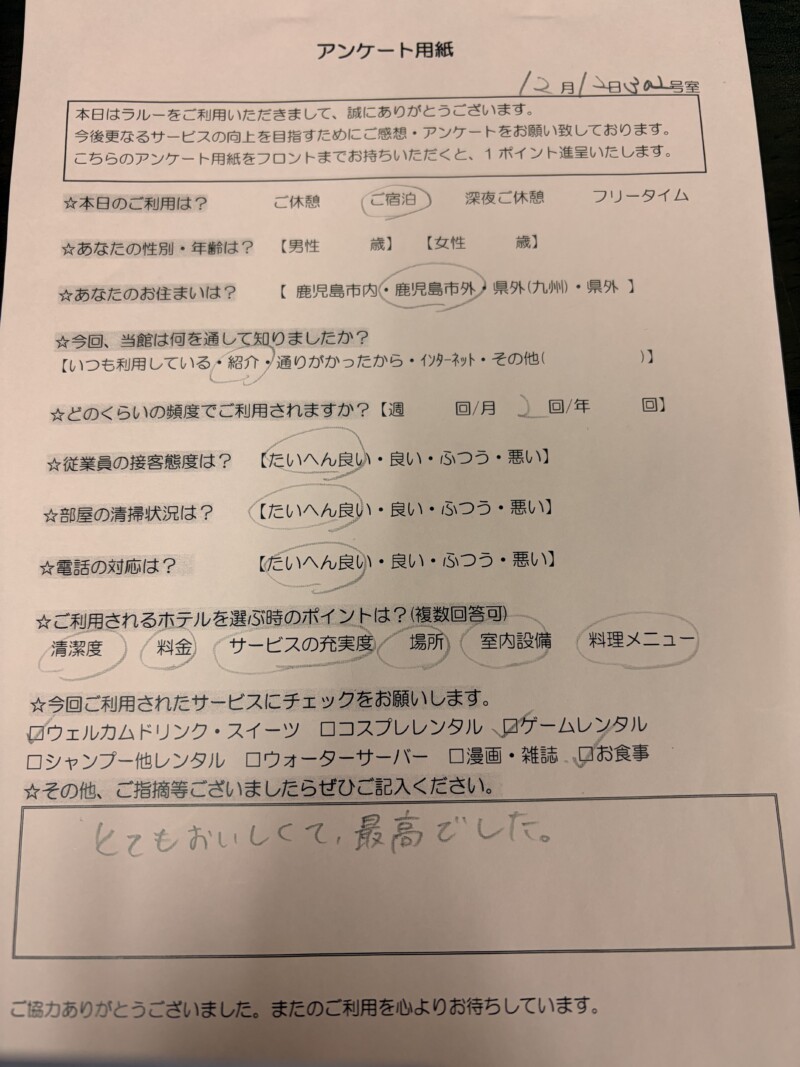 アンケート用紙
12月12日302号室
本日はラルーをご利用いただきまして、誠にありがとうございます。
今後更なるサービスの向上を目指すためにご感想・アンケートをお願い致しております。
こちらのアンケート用紙をフロントまでお持ちいただくと、1ポイント進呈いたします。
☆本日のご利用は? ご休憩 ご宿泊 深夜ご休憩 フリータイム
☆あなたの性別・年齢は? 【男性 歳】 【女性 歳】
☆あなたのお住まいは? 【 鹿児島市内・鹿児島市外・県外(九州)・県外 】
☆今回、当館は何を通して知りましたか?
【いつも利用している・紹介・通りがかったから・インターネット・その他( )】
☆どのくらいの頻度でご利用されますか?【週 回/月 回/年 回】
☆従業員の接客態度は? 【たいへん良い・良い・ふつう・悪い】
☆部屋の清掃状況は? 【たいへん良い・良い・ふつう・悪い】
☆電話の対応は? 【たいへん良い・良い・ふつう・悪い】
☆ご利用されるホテルを選ぶ時のポイントは?(複数回答可)
清潔度 料金 サービスの充実度 場所 室内設備 料理メニュー
☆今回ご利用されたサービスにチェックをお願いします。
☑ウェルカムドリンク・スイーツ □コスプレレンタル ☑ゲームレンタル
□シャンプー他レンタル □ウォーターサーバー □漫画・雑誌 ☑お食事
☆その他、ご指摘等ございましたらぜひご記入ください。
とてもおいしくて、最高でした。
ご協力ありがとうございました。またのご利用を心よりお待ちしています。